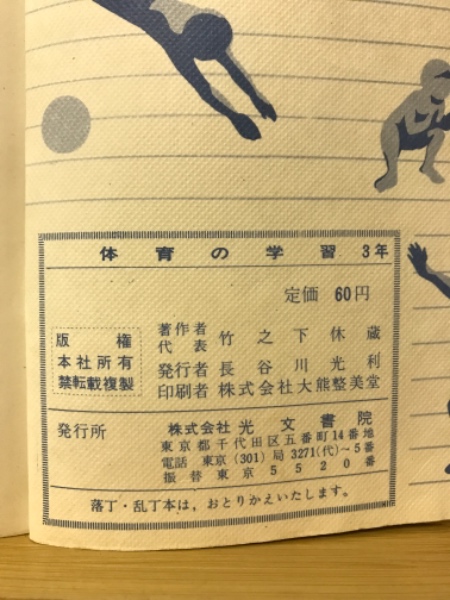 体育の学習 3年
定価 60円
版権
本社所有
禁転載複製
著作者
代表 竹之下休蔵
発行者 長谷川光利
印刷者 株式会社大熊整美堂
発行所 株式会社 光文書院
東京都千代田区五番町14番地
電話 東京(301)局 3271(代)~5番
振替東京5520番
落丁・乱丁本は,おとりかえいたします。